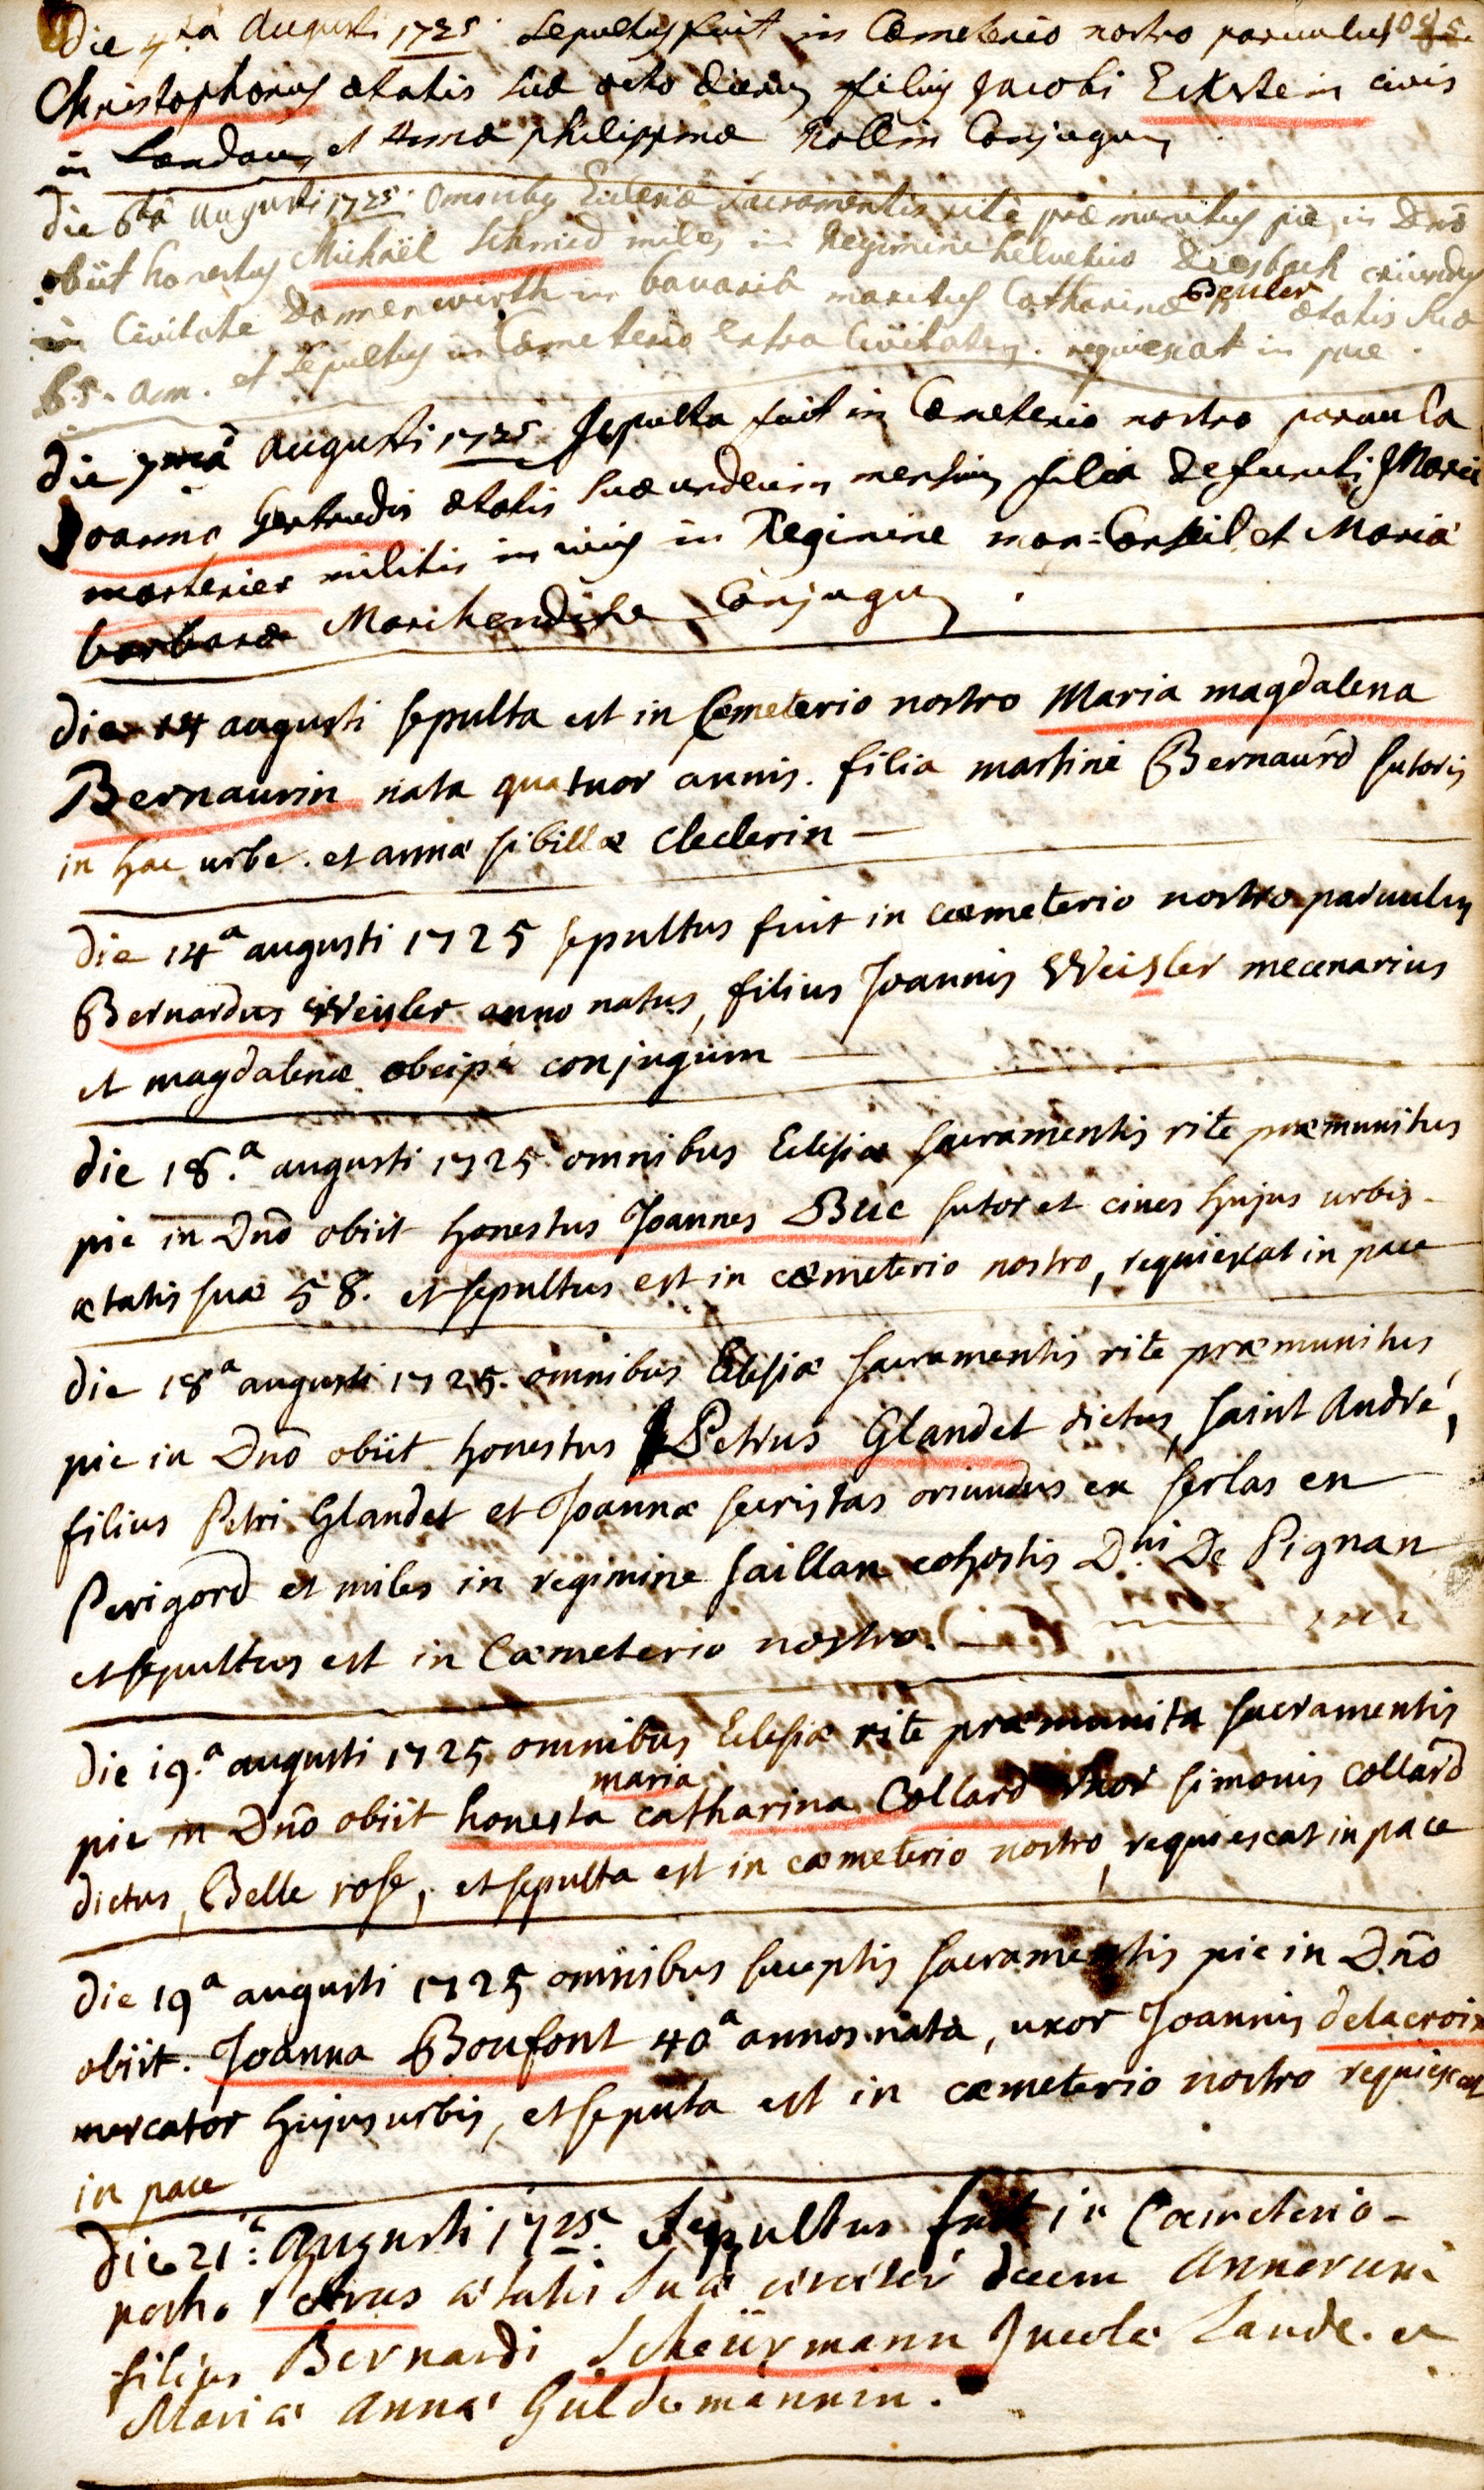 die 4ta Augusti 1725. Sepultus fuit in Cœmeterio nostro parvulus
Christophorus ætatis suæ octo dierum filius Jacobi Eckstein civis
in Landau et Annæ philippinæ Rollin Conjugum
die 6ta augusti 1725. Omnibus Ecclesiæ Sacramentis ritè præmunitus piè in Dno
obiit honestus Michaël Schmid miles in Regimine helvetico Diesbach oriundus
in Civitate Donnerwirth in bavariâ maritus Catharinæ Beuler ætatis suæ
65. ann. et sepultus in Cœmeterio extra Civitatem. requiescat in pace.
die 7mâ augusti 1725 Sepulta fuit in Cœmeterio nostro parvula
Joanna Gertrudis ætatis suæ undecim mensium filia defuncti
marterier militis in Regimine et Maria
barbaræ Conjugum.
die 14 augusti sepulta est in Cemeterio nostro Maria magdalena
Bernaurin nata quatuor annis. filia martini Bernaurd sutoris
in hac urbe. et annæ sibillæ Clederin
die 14a augusti 1725 sepultus fuit in cœmeterio nostro parvulus
Bernardus Weisler anno natus, filius Joannis Weisler mecenarius
et magdalenæ conjugum
die 18.a augusti 1725 omnibus Eclesiæ sacramentis rite præmunitus
pie in Dno obiit honestus Joannes Buc sutor et cives hujus urbis.
ætatis suæ 58. et sepultus est in cœmeterio nostro, requiescat in pace
die 18a augusti 1725. omnibus Eclesiæ sacramentis rite præmunitus
pie in Dno obiit honestus Petrus Glandet dictus, saint André,
filius Petri Glandet et Joannæ secristas oriundus ex serlas en
Perigord et miles in regimine saillan cohortis D.ni De Pignan
et sepultus est in Cœmeterio nostro.
die 19.a augusti 1725 omnibus Eclesiæ rite præmunita sacramentis
maria
pie in Dno obiit honesta catharina Collard uxor simonis collard
dictus, Belle rose, et sepulta est in cœmeterio nostro, requiescat in pace
die 19a augusti 1725 omnibus susceptis sacramentis pie in Dno
obiit. Joanna Boufont 40a annos nata, uxor Joannis delacroix
mercator hujus urbis, et seputa est in cœmeterio nostro requiescat
in pace
die 21.a Augusti 1725. Sepultus fuit in Cœmeterio
nostro Petrus ætatis suæ circiter decem Annorum
filius Bernardi Scheürmann Incolæ Landa. et
Mariæ Annæ Guldemannin.